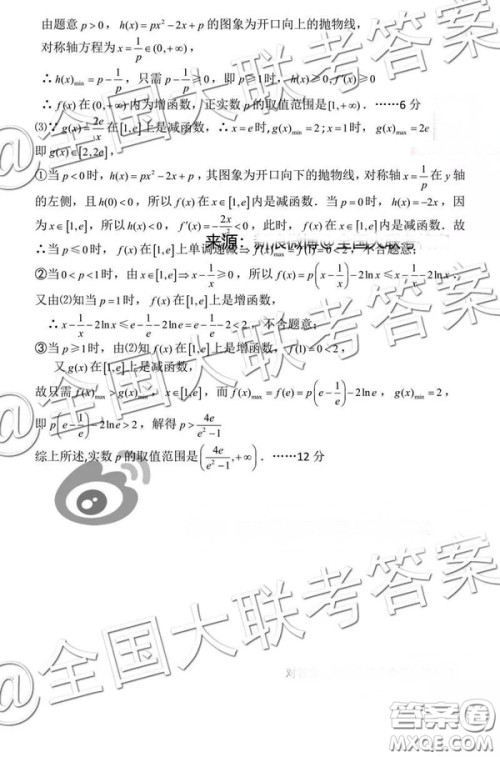 由题意 p>0，h(x)=px²-2x+p 的图象为开口向上的抛物线，
对称轴方程为 x=1/p∈(0,+∞)，
∴h(x)min=p-1/p，只需 p-1/p≥0，即 p≥1时，h(x)≥0，f'(x)≥0
∴f(x)在(0,+∞)内为增函数，正实数 p 的取值范围是[1,+∞)．……6 分
⑶∵g(x)=2e/x 在[1,e]上是减函数，∴x=e时，g(x)min=2；x=1时，g(x)max=2e
即 g(x)∈[2,2e]，
①当 p<0时，h(x)=px²-2x+p，其图象为开口向下的抛物线，对称轴 x=1/p 在 y 轴
的左侧，且 h(0)<0，所以 f(x)在[1,e]内是减函数．当 p=0时，h(x)=-2x，因
为 x∈[1,e]，所以 h(x)<0，f'(x)=-2x/x²<0，此时，f(x)在[1,e]内是减函数．故
∴当 p≤0时，f(x)在[1,e]上单调递减⇒f(x)max=f(1)=0<2，不合题意；
来源：
②当0<p<1时，由 x∈[1,e]⇒x-1/x≥0，所以 f(x)=p(x-1/x)-2lnx≤x-1/x-2lnx．
又由⑵知当 p=1时，f(x)在[1,e]上是增函数，
∴x-1/x-2lnx≤e-1/e-2lne=e-1/e-2<2，不合题意；
③当 p≥1时，由⑵知 f(x)在[1,e]上是增函数，f(1)=0<2，
又 g(x)在[1,e]上是减函数，
故只需 f(x)max>g(x)min，x∈[1,e]，而 f(x)max=f(e)=p(e-1/e)-2lne，g(x)min=2，
即 p(e-1/e)-2lne>2，解得 p>4e/(e²-1)
综上所述,实数 p 的取值范围是(4e/(e²-1),+∞)．……12 分
@全国大联考答案
@全国大联考答案
@全国大联考答案
答案卷
MXQE.COM